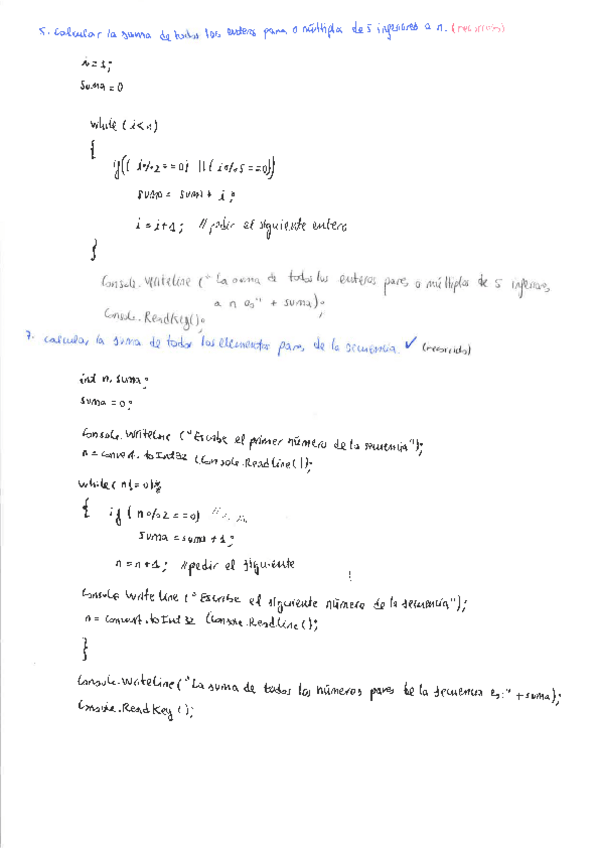 5. Calcular la suma de todos los enteros pares o múltiplos de 5 inferiores a n. (recorrido)
i=1;
suma=0
while (i<n)
{
if (( i%2==0) || ( i%5==0))
suma = suma + i ;
i = i+1 ; // pedir el siguiente entero
}
Console.WriteLine ("La suma de todos los enteros pares o múltiplos de 5 inferiores
a n es" + suma);
Console.ReadKey();
7. Calcular la suma de todos los elementos pares de la secuencia. ✓ (recorrido)
int n, suma;
suma = 0;
Console.WriteLine ("Escribe el primer número de la secuencia");
n = Convert.toInt32 (Console.ReadLine();
while (n!=0)
{ if ( n%2==0)
suma = suma + 1 ;
n = n+1 ; // pedir el siguiente
Console WriteLine ("Escribe el siguiente número de la secuencia");
n = Convert.toInt32 (Console.ReadLine();
}
Console.WriteLine ("La suma de todos los números pares de la secuencia es:" + suma);
Console.ReadKey ();